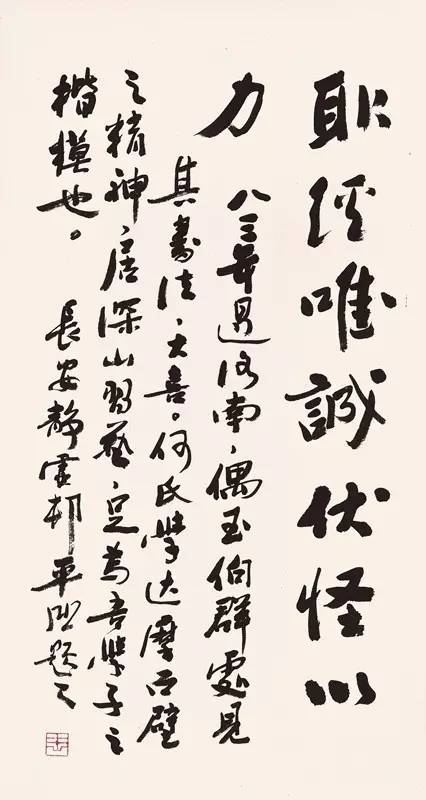 取經唯誠伏怪以
力
八三年過洛南,偶至伯群處見
其書法,大喜。何氏學達摩面壁
之精神,居深山習藝,足為吾學子之
楷模也。 長安靜虛村平凹題之